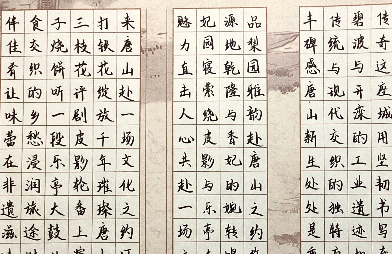 传奇这座城用坚韧书写
碧波与开滦的工业遗迹
传统与现代交织的独特
丰碑感唐山新生处处是
品梨园雅韵赴唐山之约
源地乾隆与香妃的婉转
妃园寝萦绕皮影与乐亭
赂力直击人心共赴一场
来唐山赴一场文化之约
打铁花绽放千年璀璨唐
三枝花评剧皮影轮番上
子烧饼听一段乐亭大鼓
食交织的乡愁浸润旅途
伴佳肴让味蕾在非遗滋